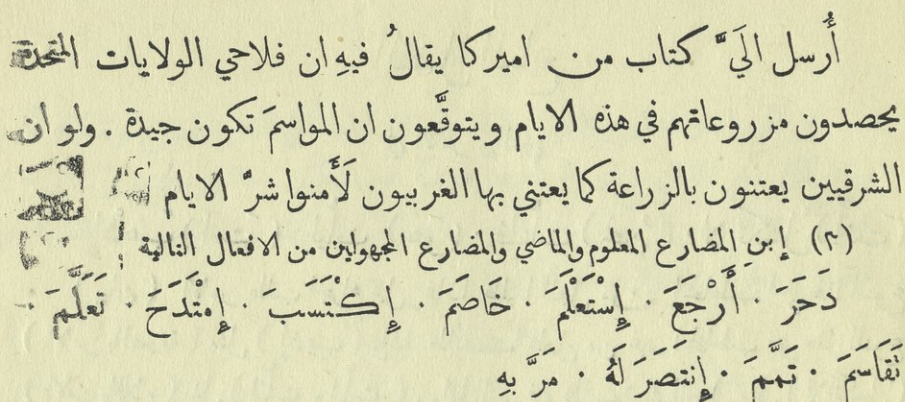 أُرسل الَيَّ كتاب من اميركا يقالُ فيهِ ان فلاحي الولايات المتحدة
يحصدون مزروعاتهم في هذه الايام ويتوقَّعون ان المواسمَ تكون جيدة . ولو ان
الشرقيين يعتنون بالزراعة كما يعتني بها الغربيون لَأَمنوا شرَّ الايام
(٢) إِبنِ المضارع المعلوم والماضي والمضارع المجهولين من الافعال التالية :
دَحَرَ . أَرْجَعَ . إِسْتَعْلَمَ . خَاصَمَ . إِكْتَسَبَ . إِمْتَدَحَ . تَعَلَّمَ .
تَقَاسَمَ . تَمَّمَ . إِنتَصَرَ لَهُ . مَرَّ بِهِ